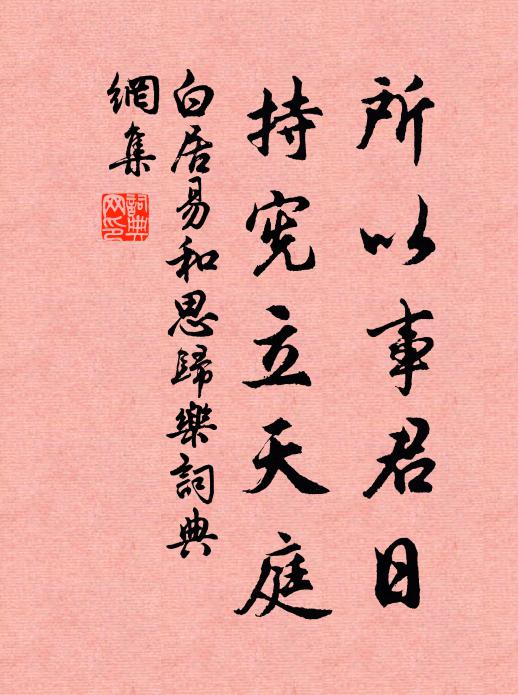 所以事君日
持宪立天庭
白居易和思歸樂詞典
網集
詞典
网印